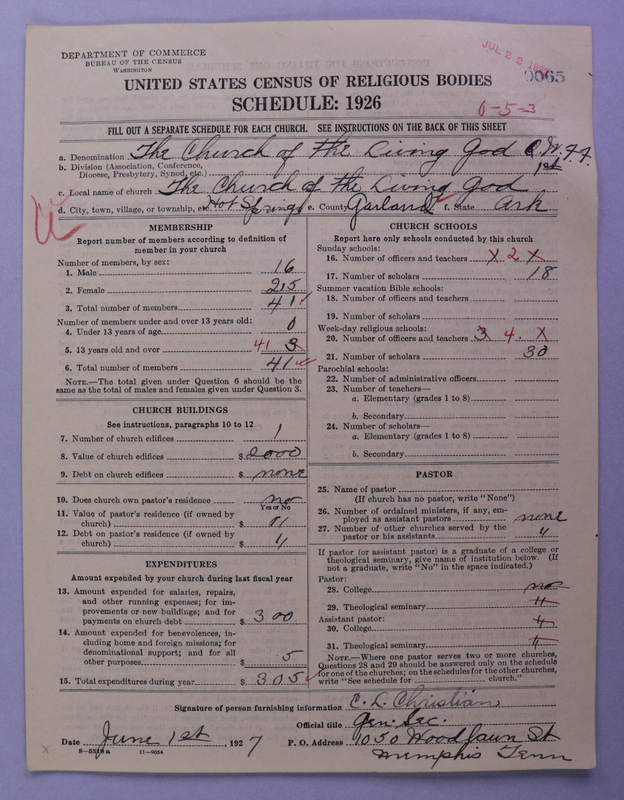 DEPARTMENT OF COMMERCE
BUREAU OF THE CENSUS
WASHINGTON
JUL 22 1927
0065
UNITED STATES CENSUS OF RELIGIOUS BODIES
SCHEDULE: 1926
0-5-3
FILL OUT A SEPARATE SCHEDULE FOR EACH CHURCH. SEE INSTRUCTIONS ON THE BACK OF THIS SHEET
a. Denomination The Church of The Living God C.W.F.F.
b. Division (Association, Conference, Diocese, Presbytery, Synod, etc.) 1st
c. Local name of church The Church of The Living God
d. City, town, village, or township, etc. Hot Springs e. County Garland f. State Ark
MEMBERSHIP
Report number of members according to definition of
member in your church
Number of members, by sex:
1. Male 16
2. Female 25
3. Total number of members 41
Number of members under and over 13 years old:
4. Under 13 years of age 0
5. 13 years old and over 41 3
6. Total number of members 41
NOTE.—The total given under Question 6 should be the
same as the total of males and females given under Question 3.
CHURCH BUILDINGS
See instructions, paragraphs 10 to 12
7. Number of church edifices 1
8. Value of church edifices $ 2000
9. Debt on church edifices $ none
10. Does church own pastor's residence no
Yes or No
11. Value of pastor's residence (if owned by
church) $
12. Debt on pastor's residence (if owned by
church) $ "
EXPENDITURES
Amount expended by your church during last fiscal year
13. Amount expended for salaries, repairs,
and other running expenses; for im-
provements or new buildings; and for
payments on church debt $ 300
14. Amount expended for benevolences, in-
cluding home and foreign missions; for
denominational support; and for all
other purposes $ 5
15. Total expenditures during year $ 305
CHURCH SCHOOLS
Report here only schools conducted by this church
Sunday schools:
16. Number of officers and teachers X 2 X
17. Number of scholars 18
Summer vacation Bible schools:
18. Number of officers and teachers
19. Number of scholars
Week-day religious schools:
20. Number of officers and teachers 3 4 X
21. Number of scholars 30
Parochial schools:
22. Number of administrative officers
23. Number of teachers—
a. Elementary (grades 1 to 8)
b. Secondary
24. Number of scholars—
a. Elementary (grades 1 to 8)
b. Secondary
PASTOR
25. Name of pastor
(If church has no pastor, write "None")
26. Number of ordained ministers, if any, em-
ployed as assistant pastors none
27. Number of other churches served by the
pastor or his assistants "
If pastor (or assistant pastor) is a graduate of a college or
theological seminary, give name of institution below. (If
not a graduate, write "No" in the space indicated.)
Pastor:
28. College no
29. Theological seminary "
Assistant pastor:
30. College "
31. Theological seminary "
NOTE.—Where one pastor serves two or more churches,
Questions 28 and 29 should be answered only on the schedule
for one of the churches; on the schedules for the other churches,
write "See schedule for church."
Signature of person furnishing information C. L. Christian
Official title Gen. Sec.
Date June 1st, 1927 P. O. Address 1050 Woodlawn St
Memphis Tenn
11-9054